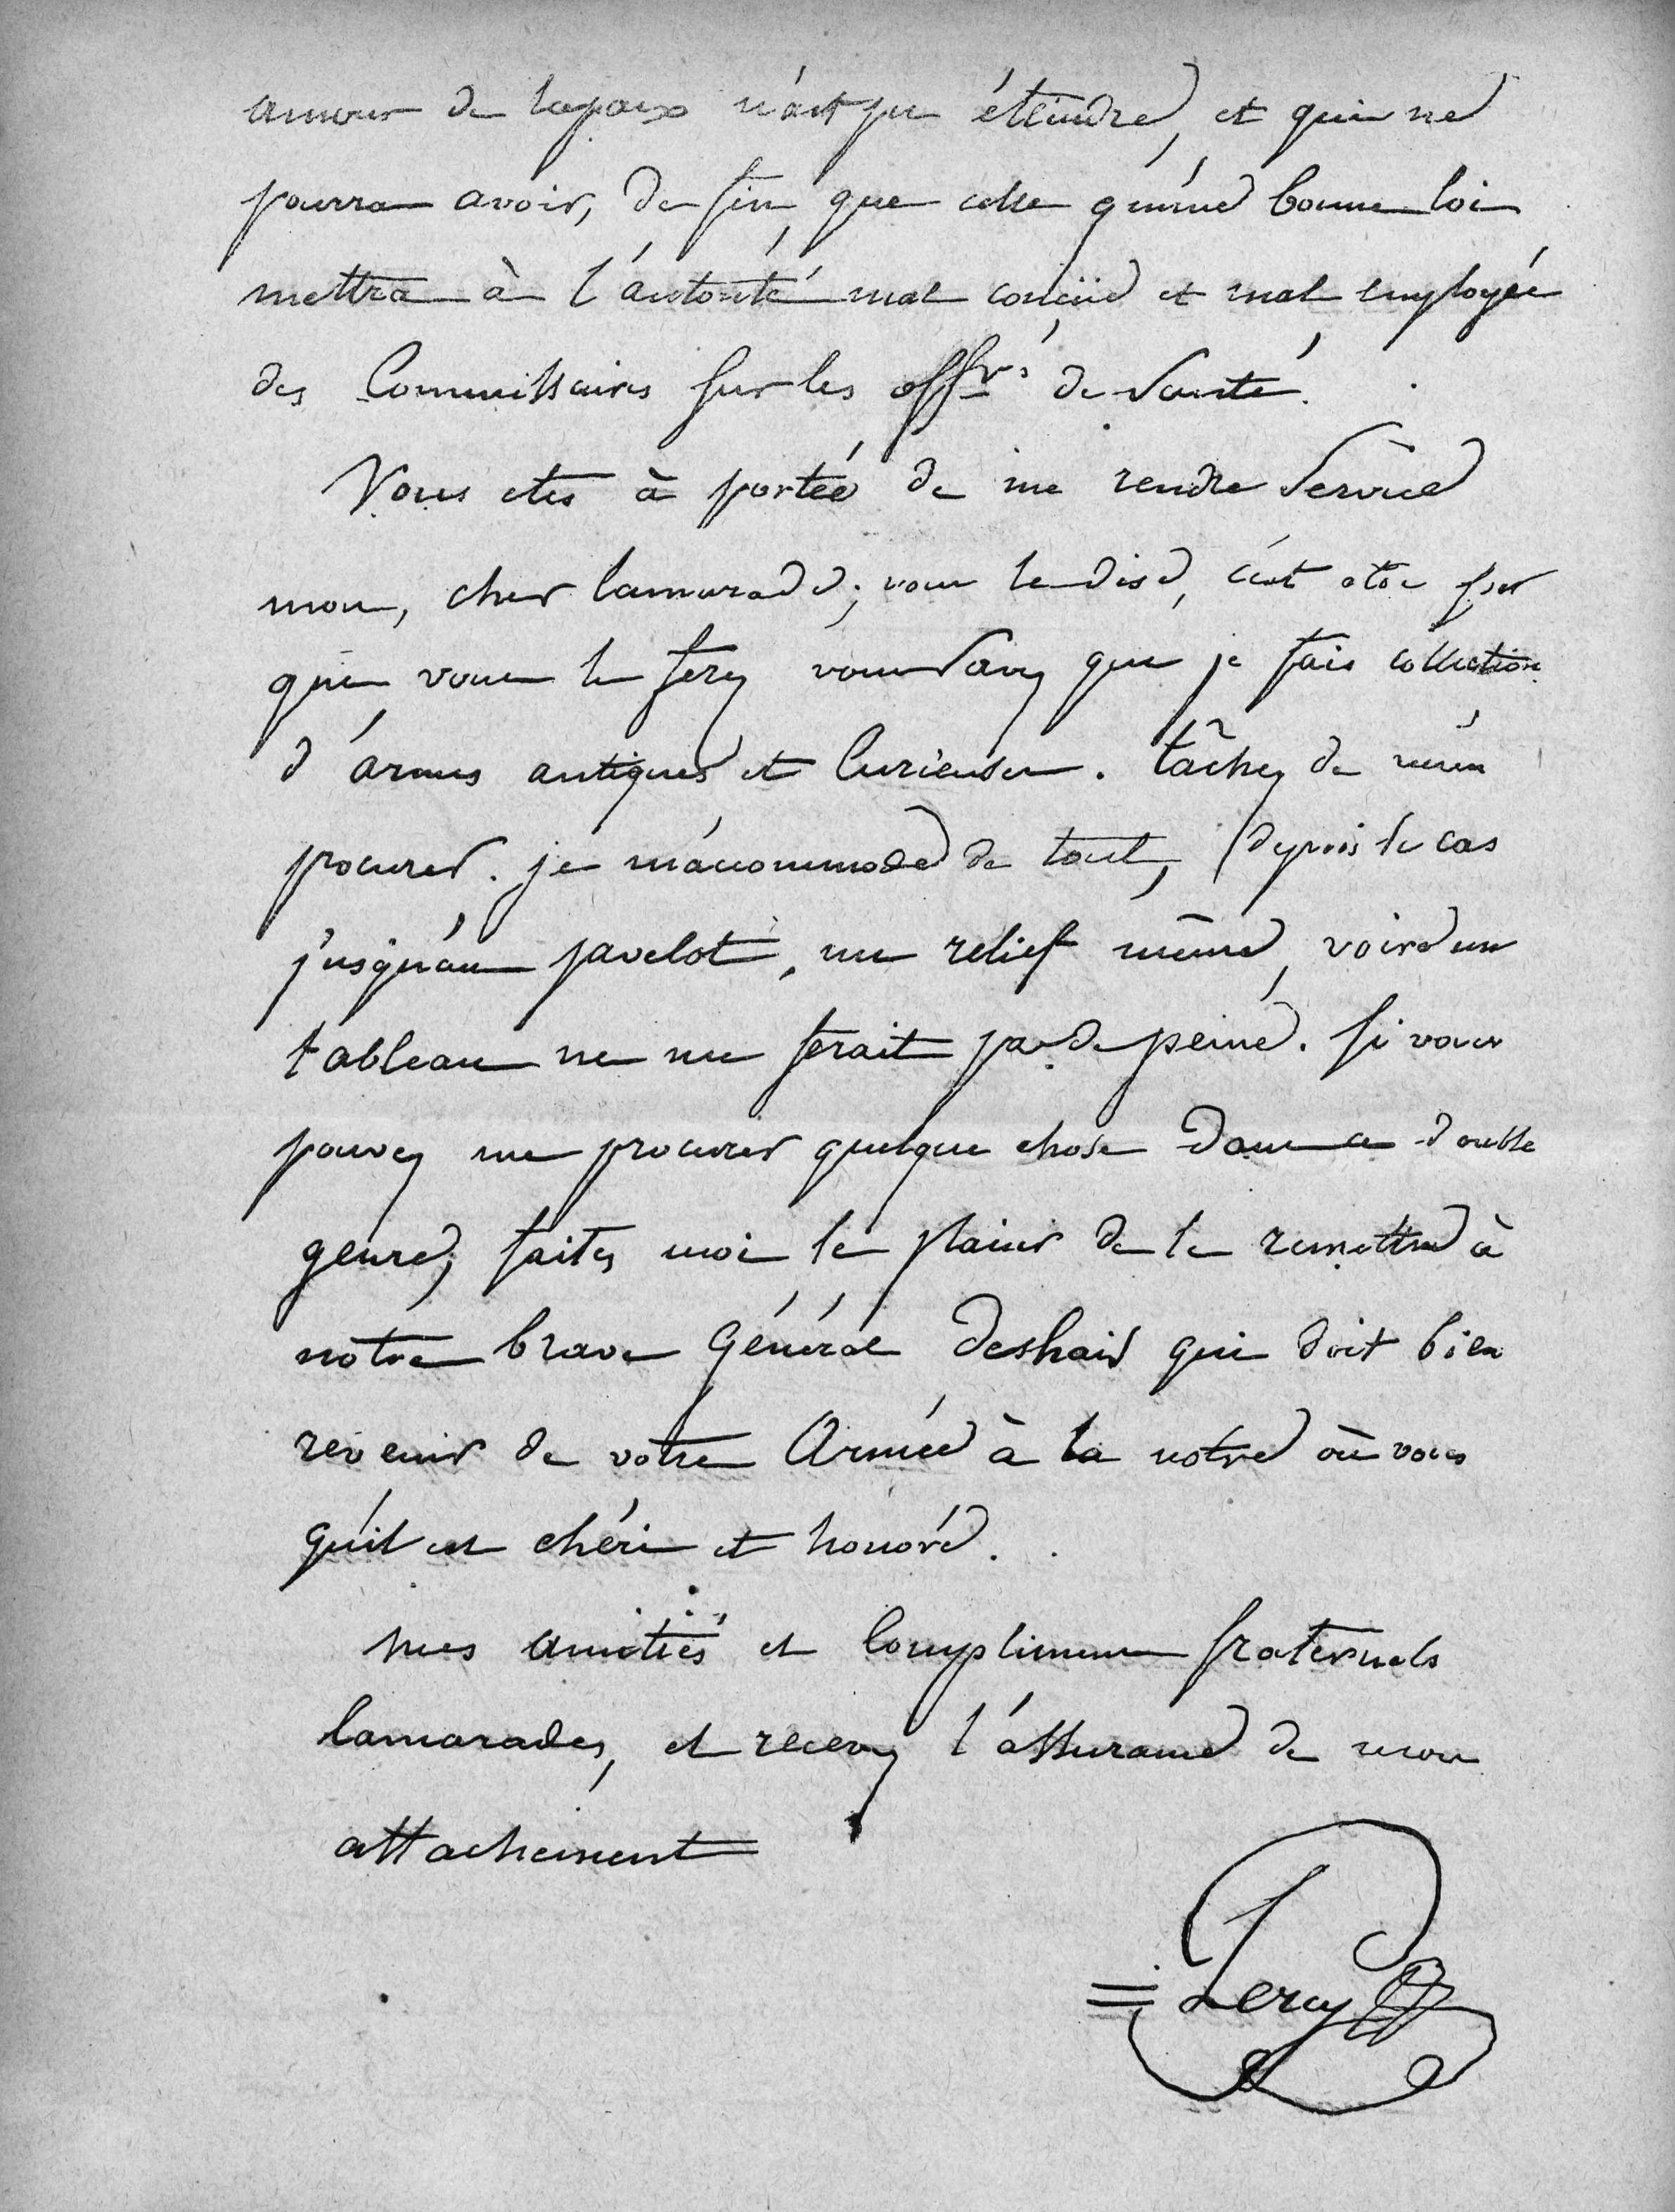 amour de la paix n'a pu éteindre, et qui ne
pourra avoir, de fin, que celle qu'une bonne loi
mettra à l'autorité mal conçue et mal employée
des Commissaires sur les offrs de Santé.
Vous etes à portée de me rendre Service
mon, cher Camarade; vous le dire, c'est etre sur
que vous le ferez vous Savez que je fais collection
d'armes antiques et Curieuses. tâchez de m'en
procurer. je m'accommode de tout, depuis le cas
jusqu'au javelot, un relief même, voire un
tableau ne me ferait pas de peine. Si vous
pouvez me procurer quelque chose dans ce double
genre, faites moi le plaisir de le remettre à
notre brave Général Deshais qui doit bien
revenir de votre Armée à la notre où vous
qu'il est chéri et honoré.
mes amitiés et Complimens fraternels
Camarades, et recevez l'assurance de mon
attachement
Leroy